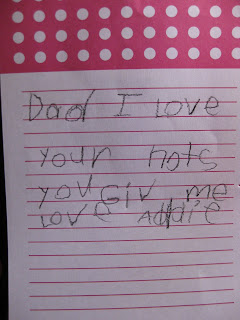 Dad I Love
your nots
you Giv me
LOVE Addie